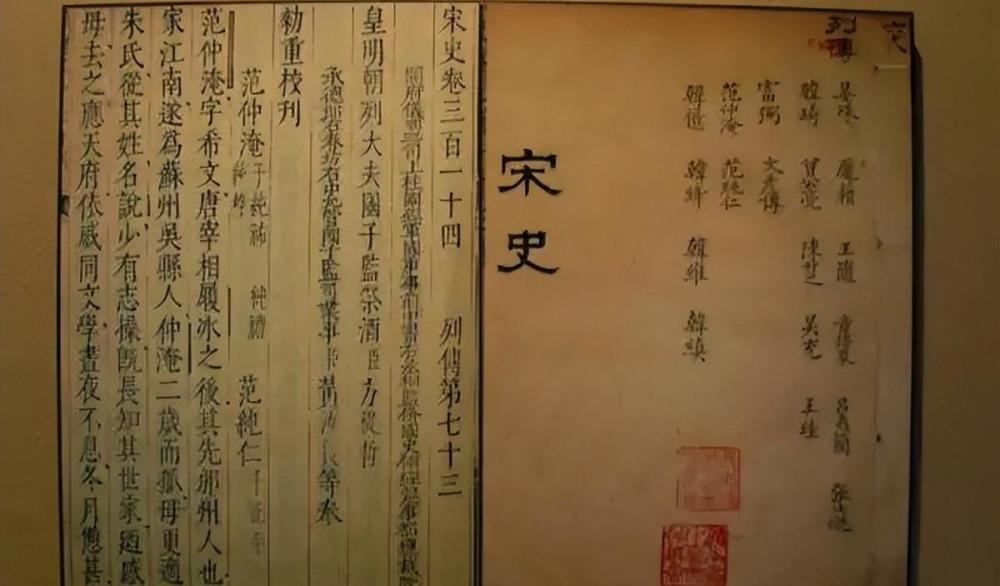 列傳
晏殊 龐籍 王隨 章得象 呂夷簡
韓琦 陳升之 吳充 王珪
富弼 文彥博
范仲淹 范純仁
韓億 韓絳 韓維 韓縝
宋史
宋史卷三百一十四 列傳第七十三
皇明朝列大夫國子監祭酒臣方從哲
國子監司業事臣黃汝良等奉
勅重校刊
范仲淹子純祐 純禮 純粹 范純仁子正平
范仲淹字希文唐宰相履冰之後其先邠州人也
家江南遂爲蘇州吳縣人仲淹二歲而孤母更適
朱氏從其姓名說少有志操旣長知其世家迺感
母去之應天府依戚同文學晝夜不息冬月憊甚